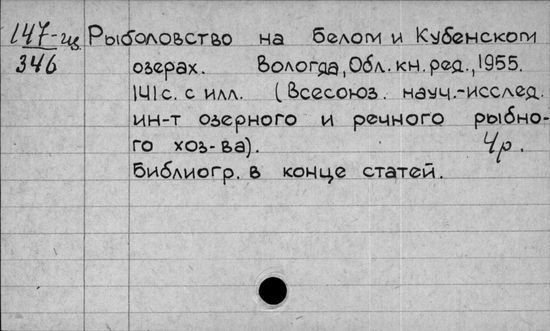 147-ги Рыболовство на белом и Кубенском
346 озерах. Вологда, Обл. кн. ред., 1955.
141 с. с илл. (Всесоюз. науч.-исслед.
ин-т озерного и речного рыбно-
го хоз-ва). 4р.
Библиогр. в конце статей.